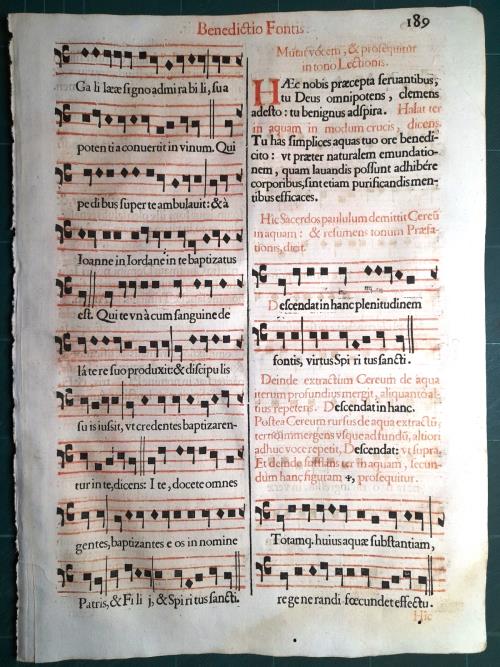 Benedictio Fontis.
189
Ga li lææ signo admi ra bi li, su a
poten ti a conuerit in vinum. Qui
pe di bus super te ambulauit: & à
Ioanne in Iordane in te baptizatus
est. Qui te vn à cum sanguine de
là te re suo produxit: & discipu lis
su is iussit, vt credentes baptizaren-
tur in te, dicens: I te, docete omnes
gentes, baptizantes e os in nomine
Patris, & Fi li j, & Spi ri tus sancti.
Mutat vocem, & prosequitur
in tono Lectionis.
HÆc nobis præcepta seruantibus,
tu Deus omnipotens, clemens
adesto: tu benignus adspira. Halat ter
in aquam in modum crucis, dicens.
Tu has simplices aquas tuo ore benedi-
cito: vt præter naturalem emundatio-
nem, quam lauandis possunt adhibére
corporibus, sint etiam purificandis men-
tibus efficaces.
Hic Sacerdos paululum demittit Cereū
in aquam: & resumens tonum Præfa-
tionis, dicit.
Descendat in hanc plenitudinem
fontis, virtus Spi ri tus sancti.
Deinde extractum Cereum de aqua
iterum profundius mergit, aliquanto al-
tius repetens. Descendat in hanc.
Postea Cereum rursus de aqua extractū,
tertiò immergens vsque ad fundū, altiori
adhuc voce repetit, Descendat: vt supra.
Et deinde sufflans ter in aquam, secun-
dùm hanc figuram Ψ, prosequitur.
Totamq. huius aquæ substantiam,
re ge ne randi fœcundet effectu.
Hic